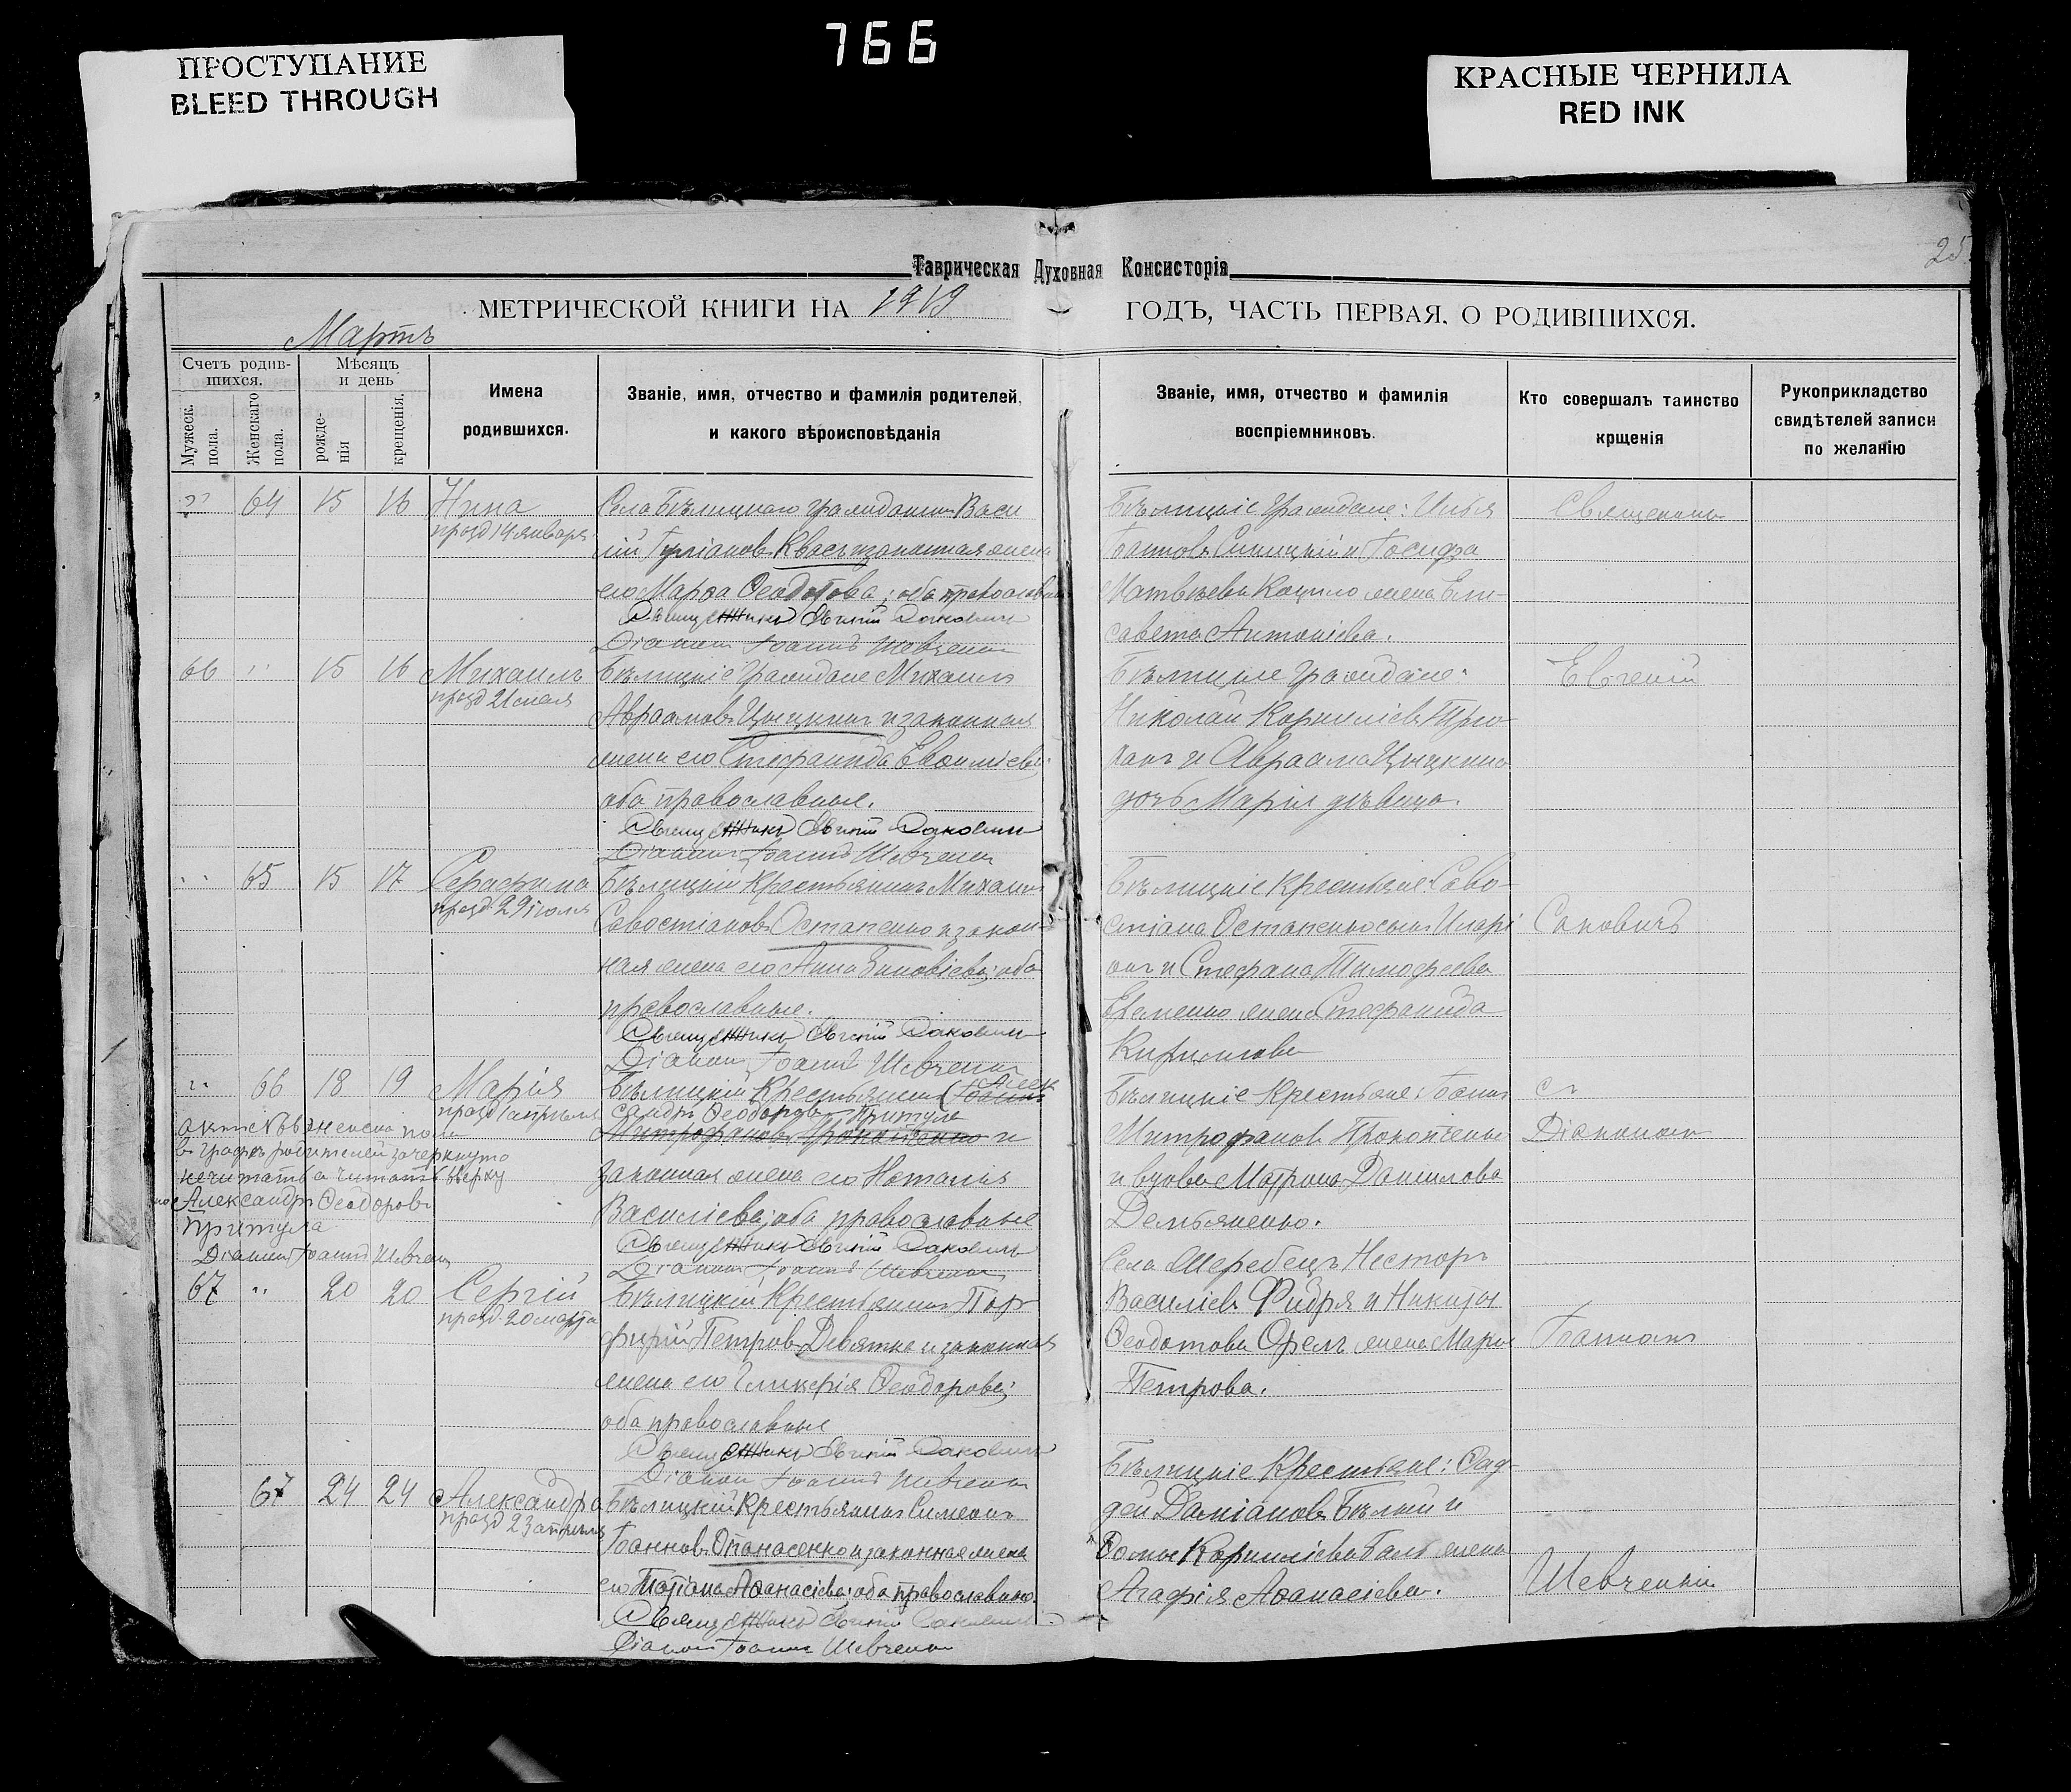 766
ПРОСТУПАНИЕ
BLEED THROUGH
КРАСНЫЕ ЧЕРНИЛА
RED INK
25
Таврическая Духовная Консисторія
МЕТРИЧЕСКОЙ КНИГИ НА 1919 ГОДЪ, ЧАСТЬ ПЕРВАЯ. О РОДИВШИХСЯ.
Мартъ
Счетъ родив-
шихся.
Мужеск.
пола.
Женскаго
пола.
Мѣсяцъ
и день
рожде-
нія
крещенія.
Имена
родившихся.
Званіе, имя, отчество и фамилія родителей,
и какого вѣроисповѣданія
Званіе, имя, отчество и фамилія
воспріемниковъ.
Кто совершалъ таинство
крщенія
Рукоприкладство
свидѣтелей записи
по желанію
" 64 15 16 Нина
празд 14 января
Села Бѣлицкаго гражданинъ Васи
лій Іуліановъ Квасъ и законная жена
его Марѳа Ѳеодотова; оба православные
Священникъ Евгеній Саковичъ
Діаконъ Іоаннъ Шевченко
Бѣлицкіе граждане: Илья
Іоанновъ Синицкій и Іосифа
Матвѣева Коцило жена Ели-
савета Антоніева.
Священникъ
66 " 15 16 Михаилъ
празд 21 мая
Бѣлицкіе граждане Михаилъ
Авраамовъ Цыцкинъ и законная
жена его Стефанида Евѳиміева;
оба православные.
Священникъ Евгеній Саковичъ
Діаконъ Іоаннъ Шевченко
Бѣлицкіе граждане:
Николай Корниліевъ Трю-
ханъ и Авраама Цыцкина
дочь Марія дѣвица.
Евгеній
" 65 15 17 Серафима
празд. 29 іюля
Бѣлицкій крестьянинъ Михаилъ
Савостіановъ Остапенко и закон-
ная жена его Анна Зиновіева; оба
православные.
Священникъ Евгеній Саковичъ
Діаконъ Іоаннъ Шевченко
Бѣлицкіе крестьяне: Саво-
стіана Остапенко сынъ Иларі
онъ и Стефана Тимофеева
Евтенко жена Стефанида
Кириллова
Саковичъ
" 66 18 19 Марія
празд 1 апрѣля
Бѣлицкій крестьянинъ (Іоаннъ Алек
сандръ Ѳеодоровъ Притула
Митрофановъ Прокопенко и
законная жена его Наталія
Василіева; оба православные
Священникъ Евгеній Саковичъ
Діаконъ Іоаннъ Шевченко
Бѣлицкіе крестьяне: Іоаннъ
Митрофановъ Прокопенко
и вдова Матрона Данилова
Демьяненко.
съ
Діакономъ
въ графѣ родителей зачеркнуто
не читать а читать вверху
Александръ Ѳеодоровъ
Притула
Діаконъ Іоаннъ Шевченко
67 " 20 20 Сергій
празд. 20 марта
Бѣлицкій крестьянинъ Пор
фирій Петровъ Девятка и законная
жена его Гликерія Ѳеодорова;
оба православные
Священникъ Евгеній Саковичъ
Діаконъ Іоаннъ Шевченко
Села Жеребецъ Несторъ
Василіевъ Фидря и Никиты
Ѳеодотова Орелъ жена Марія
Петрова.
Іоанномъ
67 24 24 Александра
празд 23 апрѣля
Бѣлицкій крестьянинъ Симеонъ
Іоанновъ Опанасенко и законная жена
его Татіана Аѳанасіева; оба православные.
Священникъ Евгеній Саковичъ
Діаконъ Іоаннъ Шевченко
Бѣлицкіе крестьяне: Ѳад-
дей Даміановъ Бѣлый и
Ѳомы Корниліева Галь жена
Агафія Аѳанасіева.
Шевченко